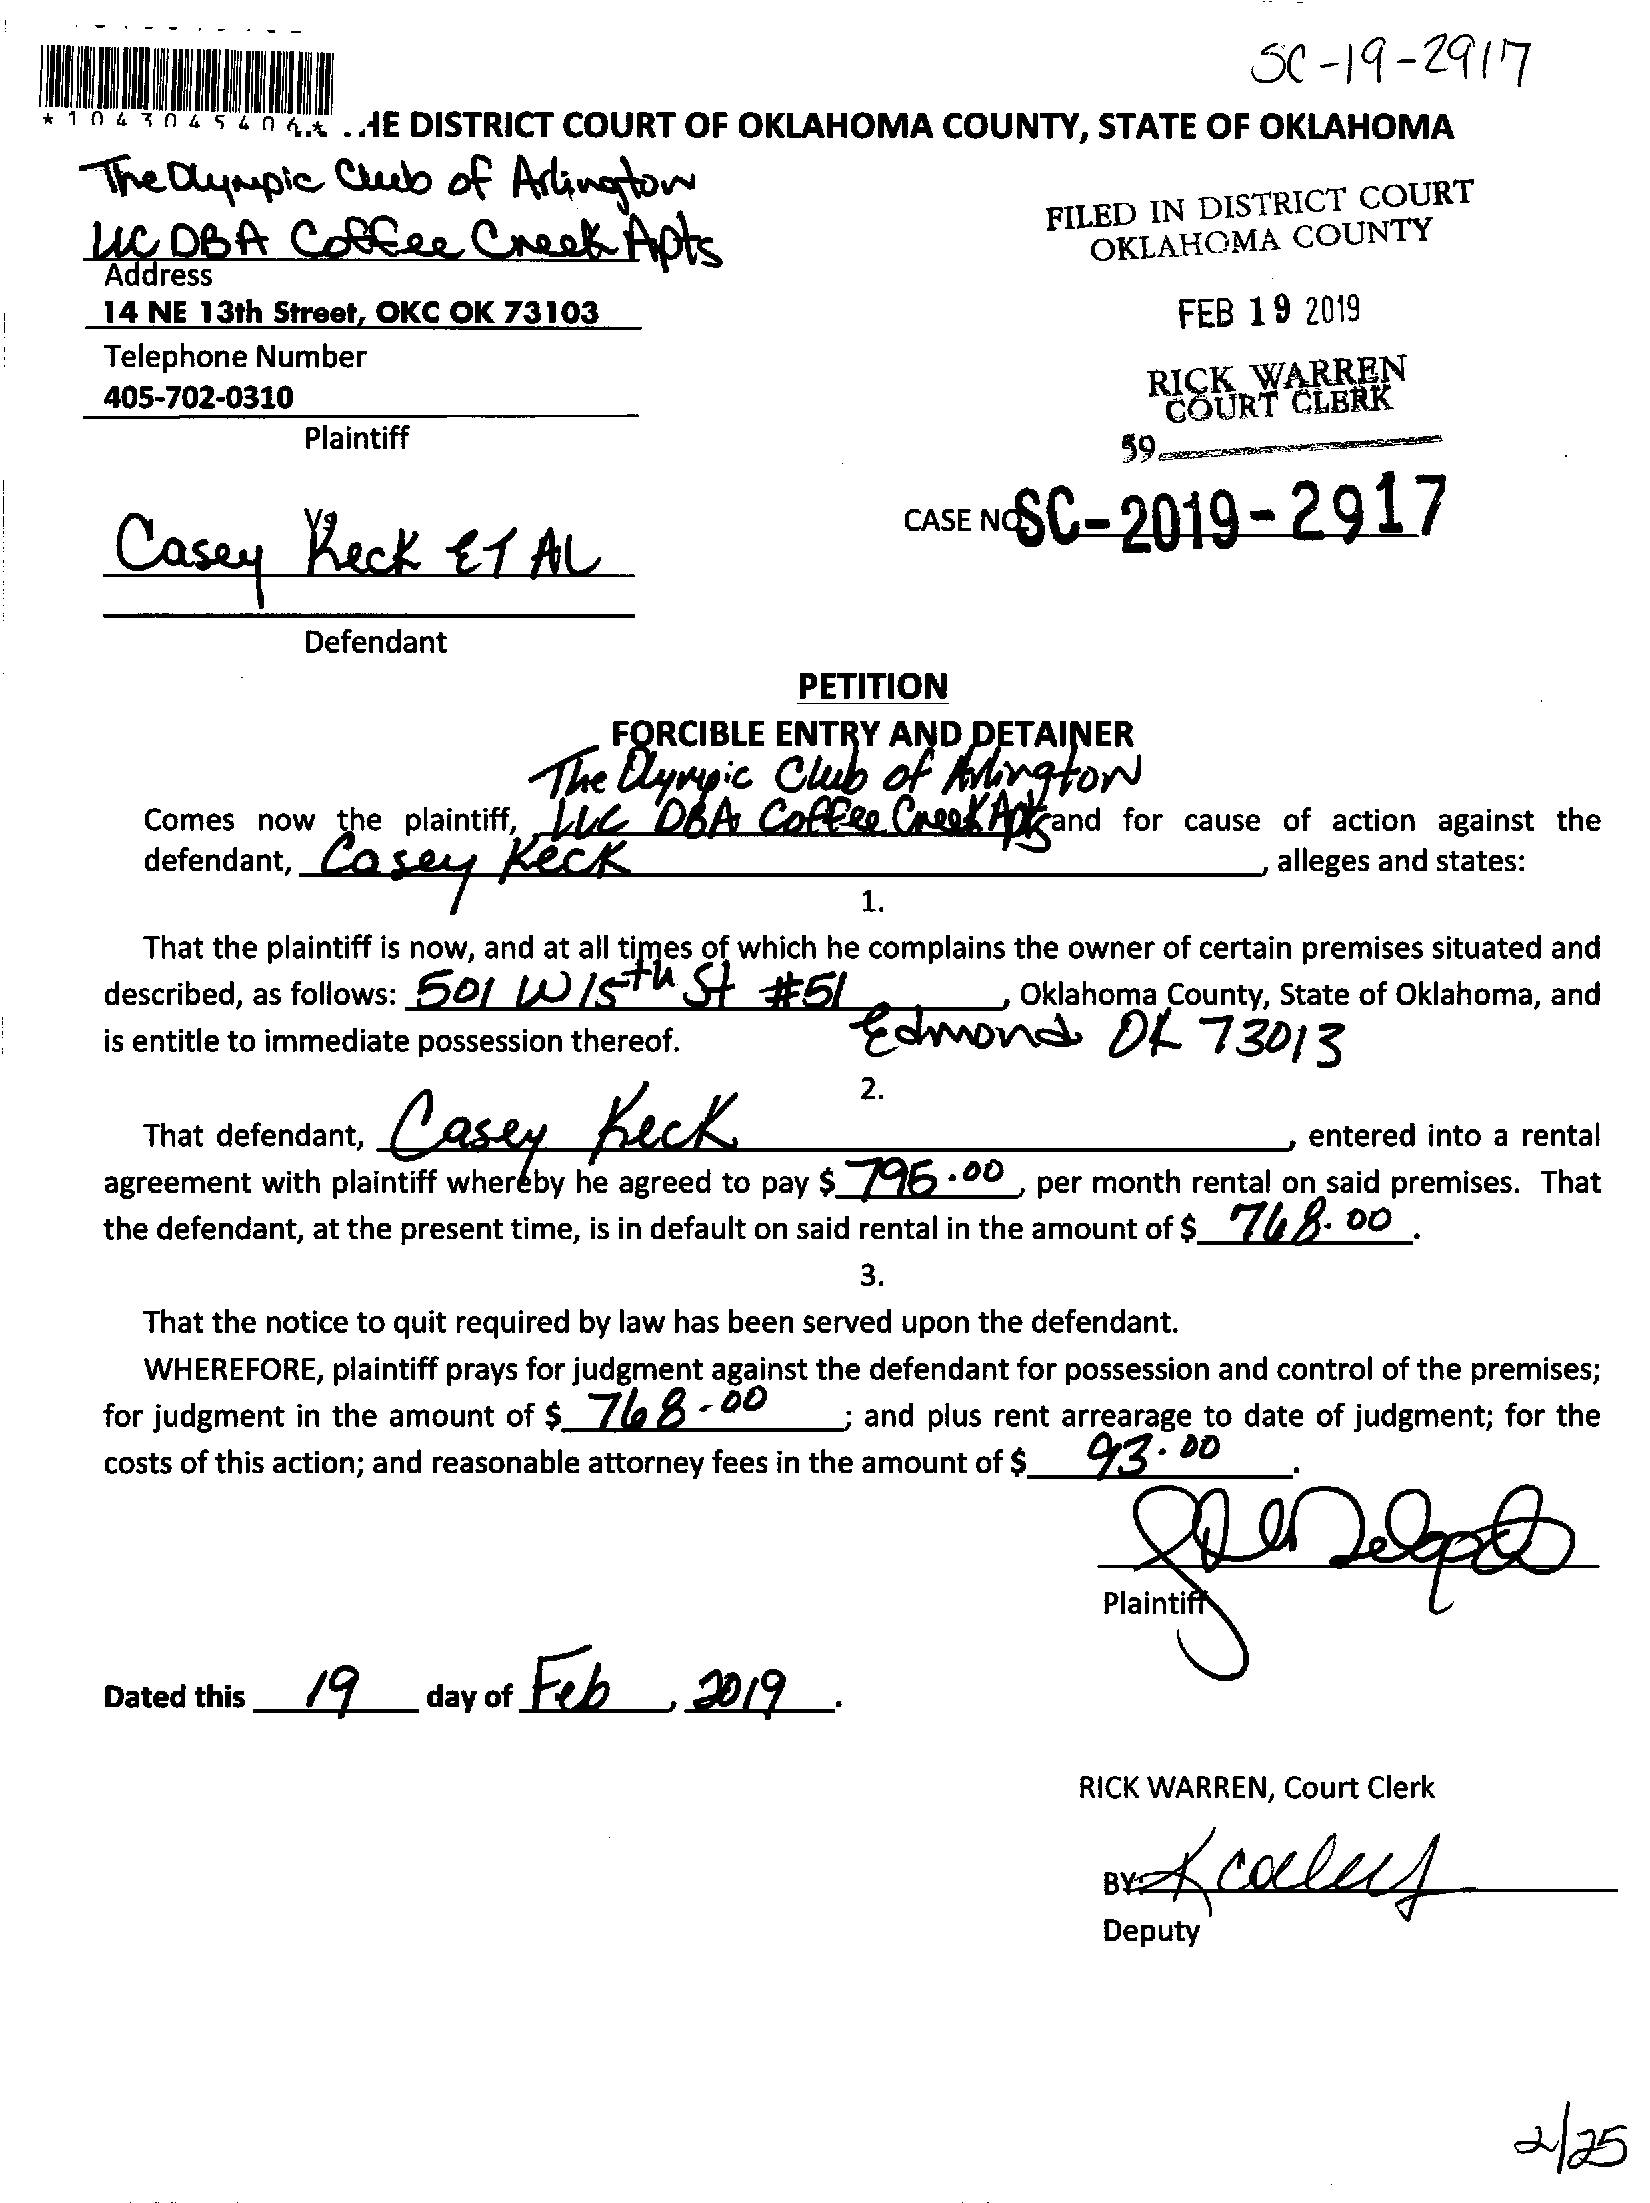 SC-19-2917
*1043045406*
HE DISTRICT COURT OF OKLAHOMA COUNTY, STATE OF OKLAHOMA
The Olympic Club of Arlington
LLC DBA Coffee Creek Apts
Address
14 NE 13th Street, OKC OK 73103
Telephone Number
405-702-0310
Plaintiff
FILED IN DISTRICT COURT
OKLAHOMA COUNTY
FEB 19 2019
RICK WARREN
COURT CLERK
59
CASE NO SC-2019-2917
Vs
Casey Keck ET AL
Defendant
PETITION
FORCIBLE ENTRY AND DETAINER
The Olympic Club of Arlington
Comes now the plaintiff, LLC DBA Coffee Creek Apts and for cause of action against the
defendant, Casey Keck, alleges and states:
1.
That the plaintiff is now, and at all times of which he complains the owner of certain premises situated and
described, as follows: 501 W 15th St #51, Oklahoma County, State of Oklahoma, and
is entitle to immediate possession thereof. Edmond OK 73013
2.
That defendant, Casey Keck, entered into a rental
agreement with plaintiff whereby he agreed to pay $ 795.00, per month rental on said premises. That
the defendant, at the present time, is in default on said rental in the amount of $ 768.00.
3.
That the notice to quit required by law has been served upon the defendant.
WHEREFORE, plaintiff prays for judgment against the defendant for possession and control of the premises;
for judgment in the amount of $ 768.00; and plus rent arrearage to date of judgment; for the
costs of this action; and reasonable attorney fees in the amount of $ 93.00.
Plaintiff
Dated this 19 day of Feb, 2019.
RICK WARREN, Court Clerk
BY:
Deputy
2/25